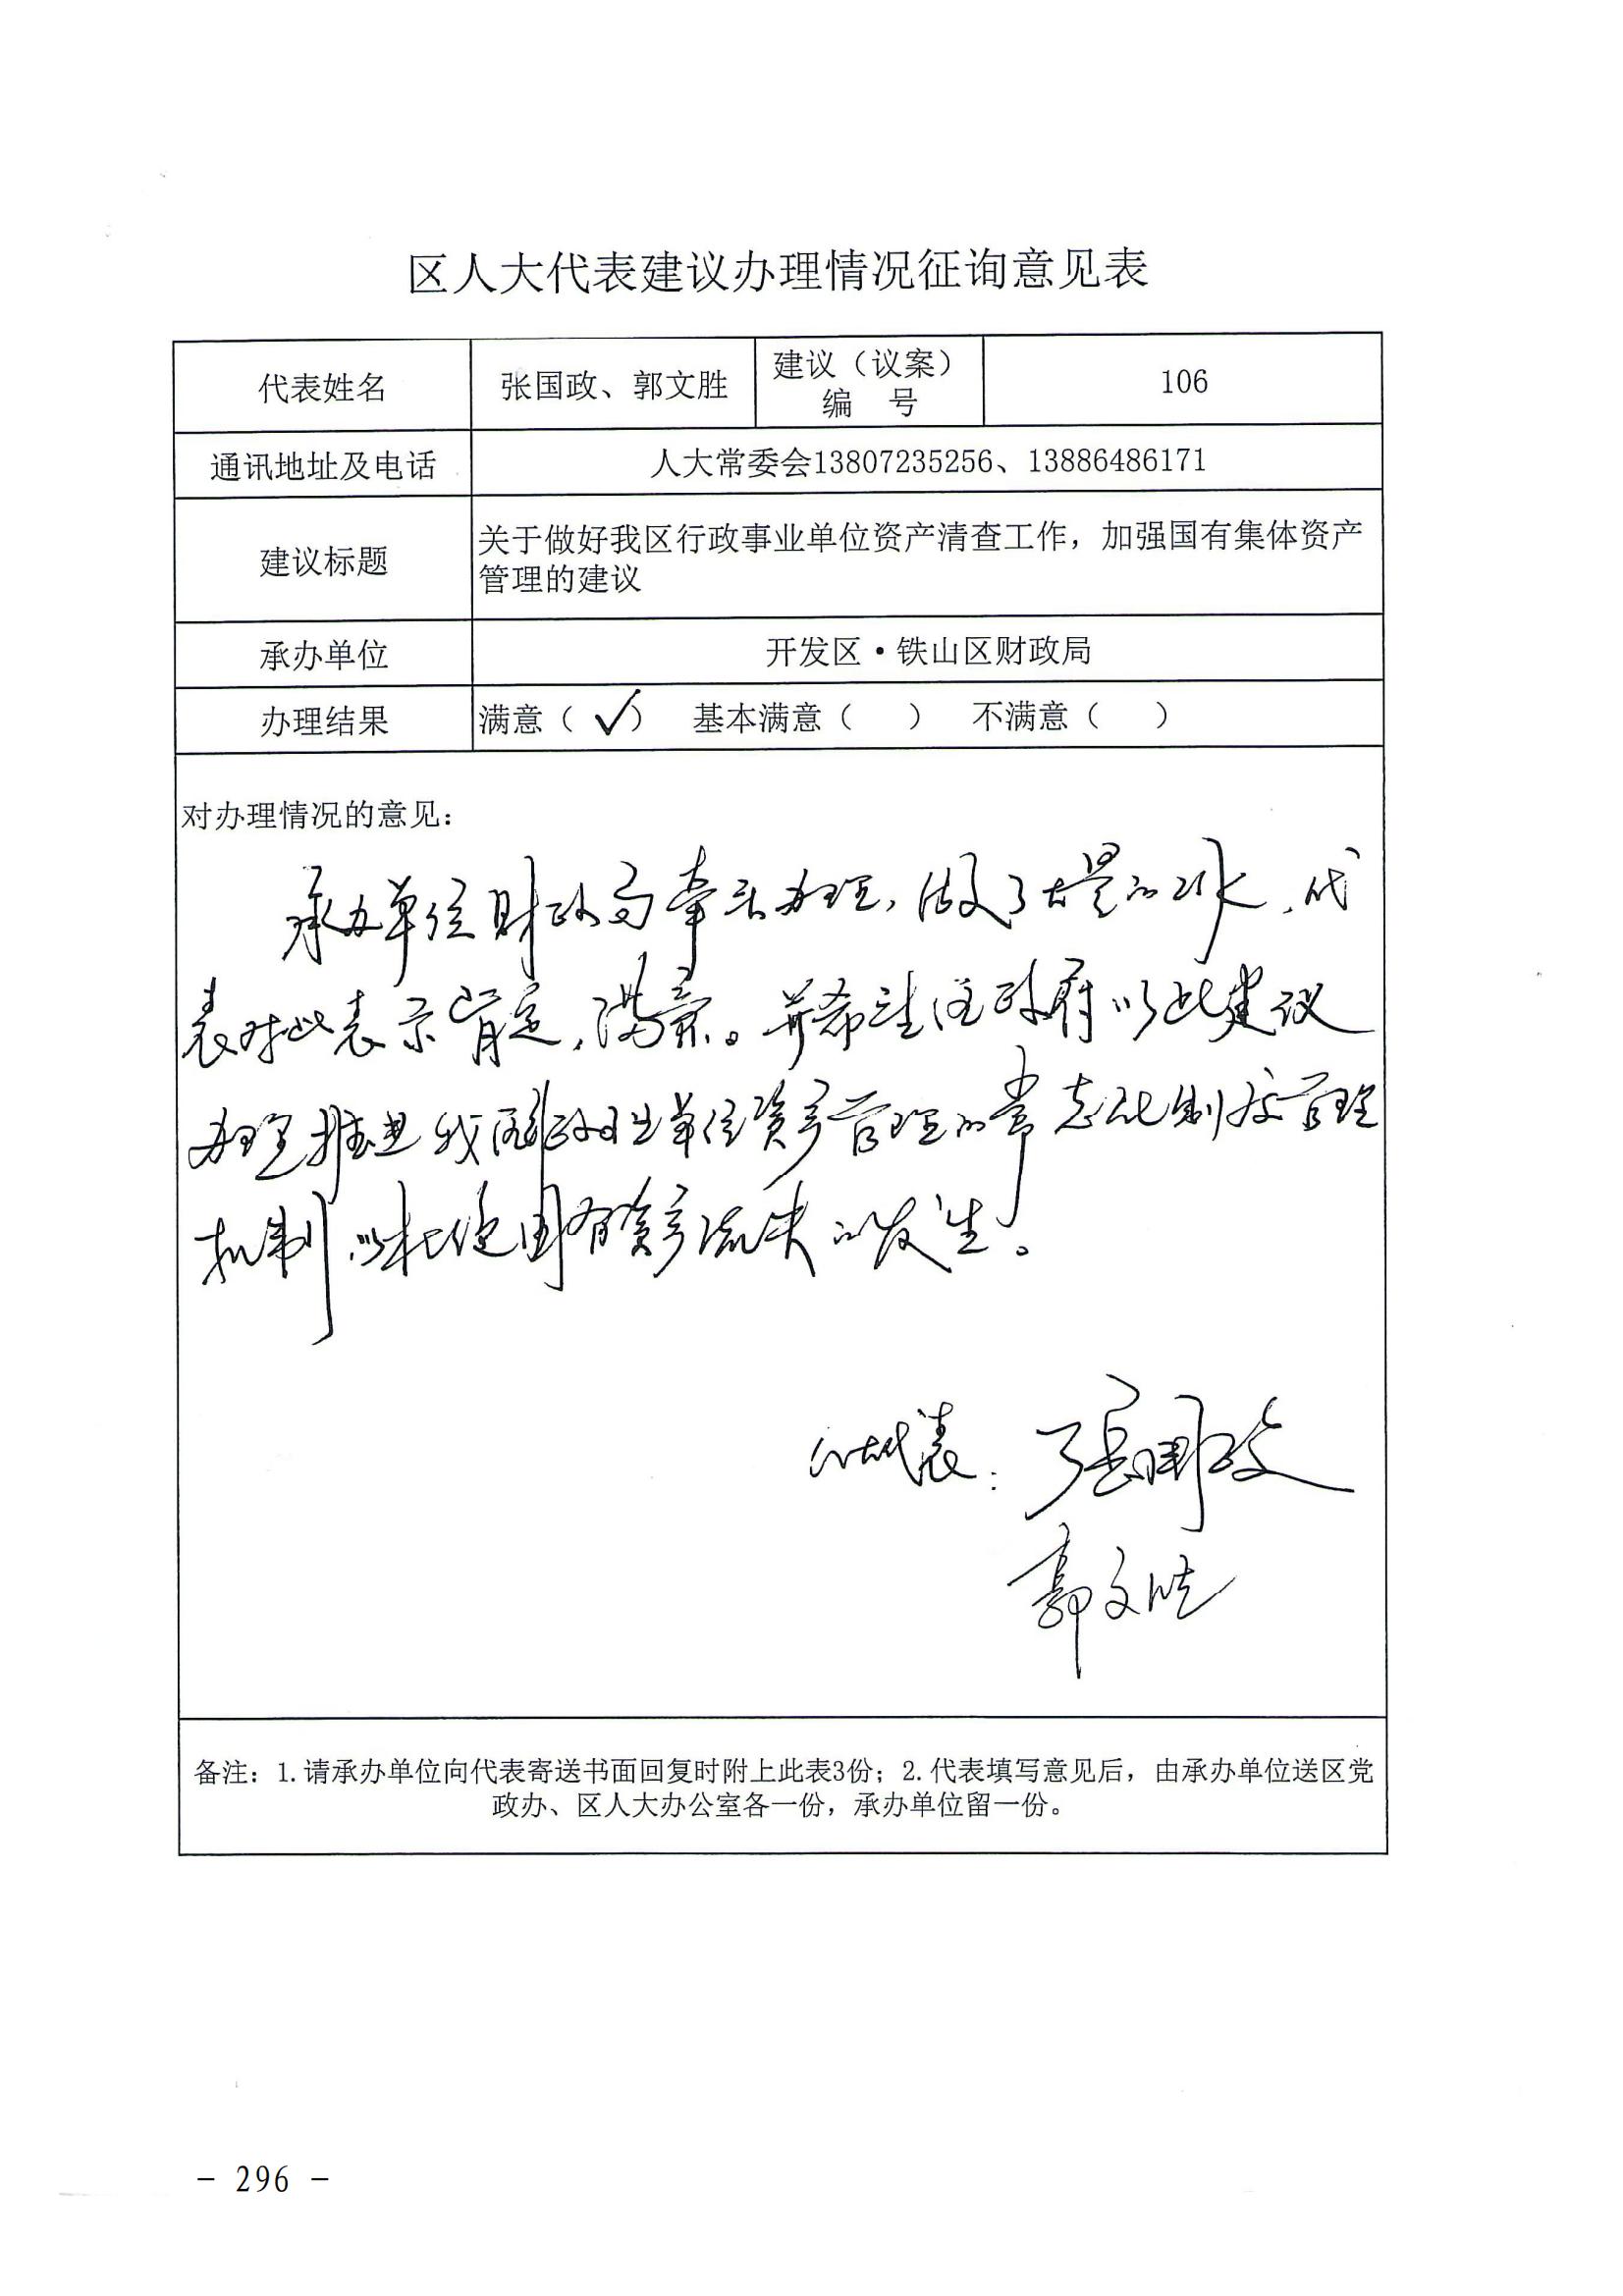 区人大代表建议办理情况征询意见表
代表姓名 张国政、郭文胜 建议（议案）编 号 106
通讯地址及电话 人大常委会13807235256、13886486171
建议标题 关于做好我区行政事业单位资产清查工作，加强国有集体资产
管理的建议
承办单位 开发区·铁山区财政局
办理结果 满意（ ✓） 基本满意（ ） 不满意（ ）
对办理情况的意见：
承办单位财政局牵头办理，做了大量的工作，代
表对此表示肯定，满意。并希望区政府以此建议
办理推进我区行政事业单位资产管理的常态化制度管理
机制，以杜绝国有资产流失的发生。
人大代表：张国政
郭文胜
备注：1.请承办单位向代表寄送书面回复时附上此表3份；2.代表填写意见后，由承办单位送区党
政办、区人大办公室各一份，承办单位留一份。
- 296 -